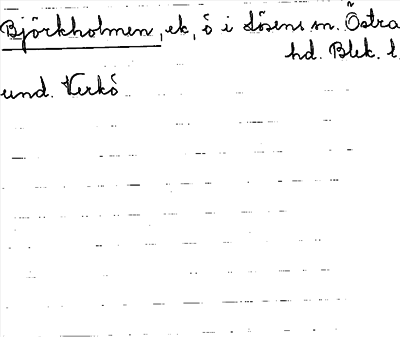 Björkholmen, ek, ö i Lösens sn. Östra
hd. Blek. l.
und. Verkö